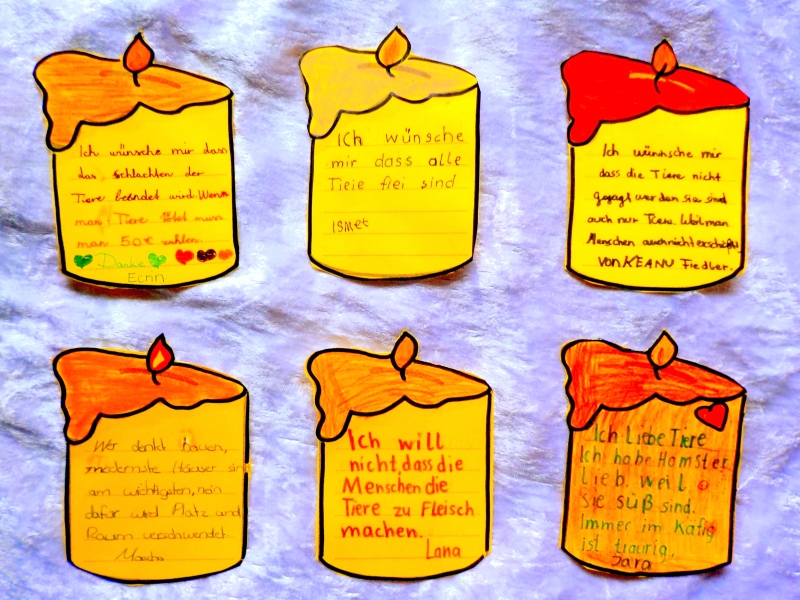 Ich wünsche mir dass
das schlachten der
Tiere beendet wird. Wenn
man Tiere tötet muss
man 50€ zahlen.
Danke
Ecrin
ICh wünsche
mir dass alle
Tieie fiei sind
Ismet
Ich wünsche mir
dass die Tiere nicht
gejagt werden sie sind
auch nur Tiere. Weil man
Menschen auch nicht erschießt
Von KEANU Fiedler.
Wer denkt bauen,
modernste Häuser sin
am wichtigsten, nein
dafür wird Platz und
Raum verschwendet
Ich will
nicht, dass die
Menschen die
Tiere zu Fleisch
machen.
Lana
Ich Liebe Tiere
Ich habe Hamster
Lieb, weil
Sie SüB sind.
Immer im Käfig
ist traurig,
Sara